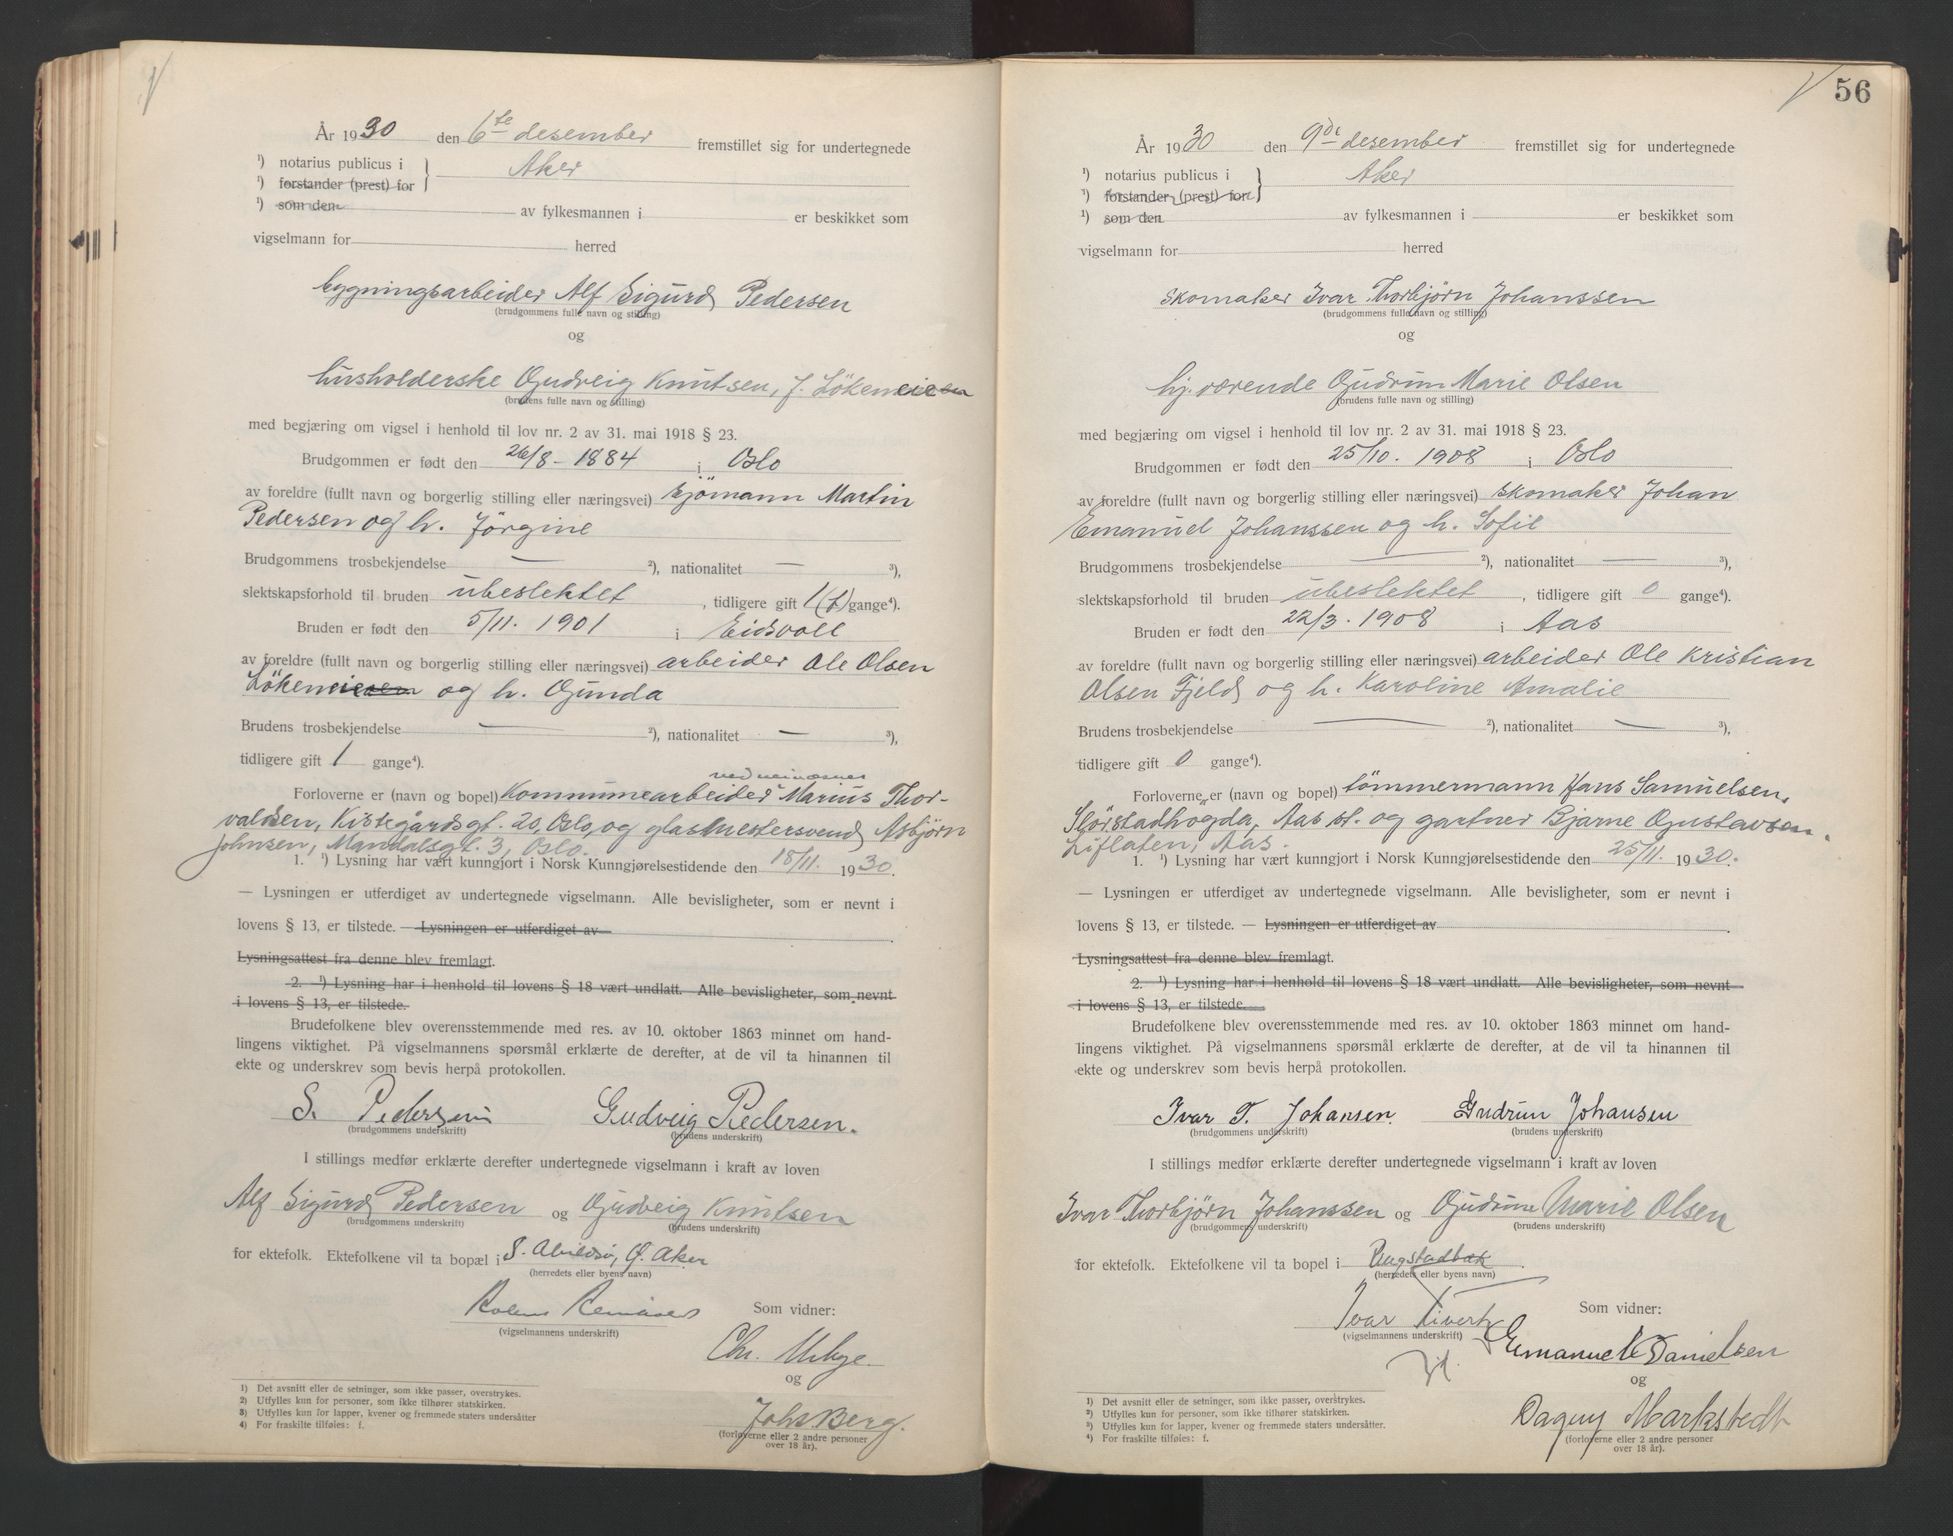 År 1930 den 6te desember fremstillet sig for undertegnede
¹) notarius publicus i Aker
¹) forstander (prest) for
¹) som den av fylkesmannen i er beskikket som
vigselmann for herred
bygningsarbeider Alf Sigurd Pedersen
(brudgommens fulle navn og stilling)
og
husholderske Gudveig Knutsen, f. Lökeneieen
(brudens fulle navn og stilling)
med begjæring om vigsel i henhold til lov nr. 2 av 31. mai 1918 § 23.
Brudgommen er født den 26/8 - 1884 i Oslo
av foreldre (fullt navn og borgerlig stilling eller næringsvei) sjömann Martin
Pedersen og h. Jörgine
Brudgommens trosbekjendelse — ²), nationalitet — ³),
slektskapsforhold til bruden ubeslektet, tidligere gift 1 (f) gange⁴).
Bruden er født den 5/11. 1901 i Eidsvoll
av foreldre (fullt navn og borgerlig stilling eller næringsvei) arbeider Ole Olsen
Lökeneieen og h. Gunda
Brudens trosbekjendelse — ²), nationalitet — ³),
tidligere gift 1 gange⁴).
Forloverne er (navn og bopel) Kommunearbeider Marius Thor-
valdsen, Kistegårdsgt. 20, Oslo, og glasmestersvend Asbjörn
Johnsen, Mandalsgt. 3, Oslo.
1. ¹) Lysning har vært kunngjort i Norsk Kunngjørelsestidende den 18/11. 1930.
— Lysningen er utferdiget av undertegnede vigselmann. Alle bevisligheter, som er nevnt i
lovens § 13, er tilstede. — Lysningen er utferdiget av
Lysningsattest fra denne blev fremlagt.
2. ¹) Lysning har i henhold til lovens § 18 vært undlatt. Alle bevisligheter, som nevnt
i lovens § 13, er tilstede.
Brudefolkene blev overensstemmende med res. av 10. oktober 1863 minnet om hand-
lingens viktighet. På vigselmannens spørsmål erklærte de derefter, at de vil ta hinannen til
ekte og underskrev som bevis herpå protokollen.
S. Pedersen Gudveig Pedersen.
(brudgommens underskrift) (brudens underskrift)
I stillings medfør erklærte derefter undertegnede vigselmann i kraft av loven
Alf Sigurd Pedersen og Gudveig Knutsen
(brudgommens underskrift) (brudens underskrift)
for ektefolk. Ektefolkene vil ta bopæl i S. Abildsø, Ø. Aker
(herredets eller byens navn)
Som vidner:
(vigselmannens underskrift)
Chr.
og
Johs Berg.
(forloverne eller 2 andre personer
over 18 år).
1) Det avsnitt eller de setninger, som ikke passer, overstrykes.
2) Utfylles kun for personer, som ikke tilhører statskirken.
3) Utfylles kun for lapper, kvener og fremmede staters undersåtter
4) For fraskilte tilføies: f.
56
År 1930 den 9de desember fremstillet sig for undertegnede
¹) notarius publicus i Aker
¹) forstander (prest) for
¹) som den av fylkesmannen i er beskikket som
vigselmann for herred
skomaker Ivar Thorbjörn Johanssen
(brudgommens fulle navn og stilling)
og
hj. værende Gudrun Marie Olsen
(brudens fulle navn og stilling)
med begjæring om vigsel i henhold til lov nr. 2 av 31. mai 1918 § 23.
Brudgommen er født den 25/10. 1908 i Oslo
av foreldre (fullt navn og borgerlig stilling eller næringsvei) skomaker Johan
Emanuel Johanssen og h. Sofie
Brudgommens trosbekjendelse — ²), nationalitet — ³),
slektskapsforhold til bruden ubeslektet, tidligere gift 0 gange⁴).
Bruden er født den 22/3. 1908 i Aas
av foreldre (fullt navn og borgerlig stilling eller næringsvei) arbeider Ole Kristian
Olsen Fjeld og h. Karoline Amalie
Brudens trosbekjendelse — ²), nationalitet — ³),
tidligere gift 0 gange⁴).
Forloverne er (navn og bopel) tömmermann Hans Samuelsen,
Slörstadhögda, Aas st. og gartner Bjarne Gustavsen,
Liflaten, Aas.
1. ¹) Lysning har vært kunngjort i Norsk Kunngjørelsestidende den 25/11. 1930.
— Lysningen er utferdiget av undertegnede vigselmann. Alle bevisligheter, som er nevnt i
lovens § 13, er tilstede. — Lysningen er utferdiget av
Lysningsattest fra denne blev fremlagt.
2. ¹) Lysning har i henhold til lovens § 18 vært undlatt. Alle bevisligheter, som nevnt
i lovens § 13, er tilstede.
Brudefolkene blev overensstemmende med res. av 10. oktober 1863 minnet om hand-
lingens viktighet. På vigselmannens spørsmål erklærte de derefter, at de vil ta hinannen til
ekte og underskrev som bevis herpå protokollen.
Ivar T. Johansen. Gudrun Johansen
(brudgommens underskrift) (brudens underskrift)
I stillings medfør erklærte derefter undertegnede vigselmann i kraft av loven
Ivar Thorbjörn Johanssen og Gudrun Marie Olsen
(brudgommens underskrift) (brudens underskrift)
for ektefolk. Ektefolkene vil ta bopel i Ungstadbak
(herredets eller byens navn)
Ivar Sivertz Som vidner:
(vigselmannens underskrift)
Emanuel Danielsen
og
Dagny Markstedt
(forloverne eller 2 andre personer
over 18 år).
1) Det avsnitt eller de setninger, som ikke passer, overstrykes.
2) Utfylles kun for personer, som ikke tilhører statskirken.
3) Utfylles kun for lapper, kvener og fremmede staters undersåtter.
4) For fraskilte tilføies: f.